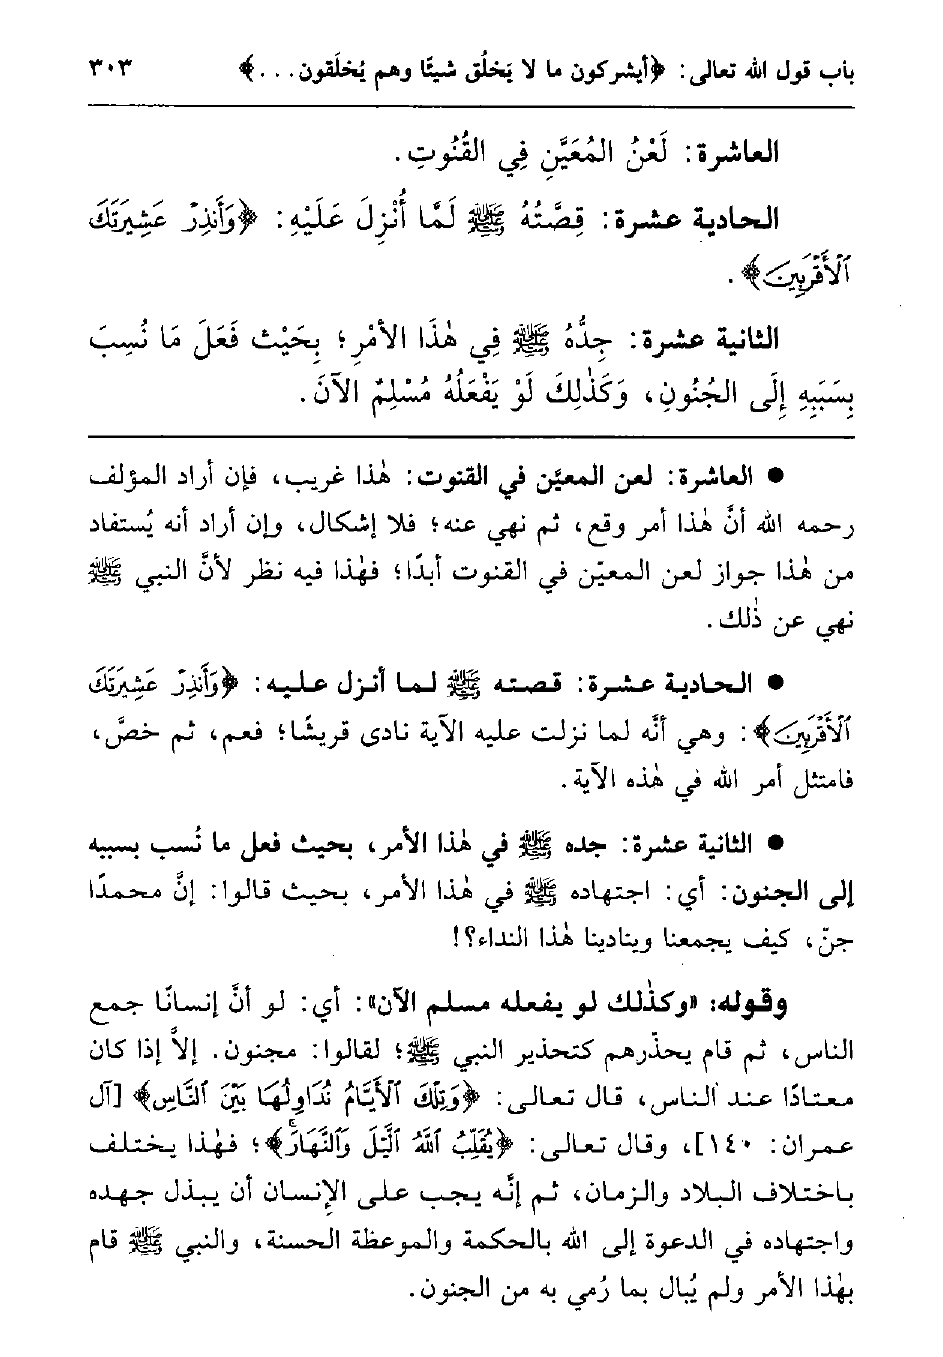 باب قول الله تعالى: ﴿أيشركون ما لا يَخلُق شيئًا وهم يُخلَقون...﴾ ٣٠٣
العاشرة: لَعْنُ المُعَيَّنِ فِي القُنُوتِ.
الحادية عشرة: قِصَّتُهُ ﷺ لَمَّا أُنْزِلَ عَلَيْهِ: ﴿وَأَنذِرْ عَشِيرَتَكَ
ٱلْأَقْرَبِينَ﴾.
الثانية عشرة: جِدُّهُ ﷺ فِي هٰذَا الأمْرِ؛ بِحَيْث فَعَلَ مَا نُسِبَ
بِسَبَبِهِ إِلَى الجُنُونِ، وَكَذٰلِكَ لَوْ يَفْعَلُهُ مُسْلِمٌ الآنَ.
● العاشرة: لعن المعيَّن في القنوت: هٰذا غريب، فإن أراد المؤلف
رحمه الله أنَّ هٰذا أمر وقع، ثم نهي عنه؛ فلا إشكال، وإن أراد أنه يُستفاد
من هٰذا جواز لعن المعيّن في القنوت أبدًا؛ فهٰذا فيه نظر لأنَّ النبي ﷺ
نهي عن ذٰلك.
● الحادية عشرة: قصته ﷺ لما أنزل عليه: ﴿وَأَنذِرْ عَشِيرَتَكَ
ٱلْأَقْرَبِينَ﴾: وهي أنَّه لما نزلت عليه الآية نادى قريشًا؛ فعم، ثم خصَّ،
فامتثل أمر الله في هٰذه الآية.
● الثانية عشرة: جده ﷺ في هٰذا الأمر، بحيث فعل ما نُسب بسببه
إلى الجنون: أي: اجتهاده ﷺ في هٰذا الأمر، بحيث قالوا: إنَّ محمدًا
جنّ، كيف يجمعنا وينادينا هٰذا النداء؟!
وقوله: «وكذٰلك لو يفعله مسلم الآن»: أي: لو أنَّ إنسانًا جمع
الناس، ثم قام يحذّرهم كتحذير النبي ﷺ؛ لقالوا: مجنون. إلاَّ إذا كان
معتادًا عند الناس، قال تعالى: ﴿وَتِلْكَ ٱلْأَيَّامُ نُدَاوِلُهَا بَيْنَ ٱلنَّاسِ﴾ [آل
عمران: ١٤٠]، وقال تعالى: ﴿يُقَلِّبُ ٱللَّهُ ٱلَّيْلَ وَٱلنَّهَارَۚ﴾؛ فهٰذا يختلف
باختلاف البلاد والزمان، ثم إنَّه يجب على الإنسان أن يبذل جهده
واجتهاده في الدعوة إلى الله بالحكمة والموعظة الحسنة، والنبي ﷺ قام
بهٰذا الأمر ولم يُبال بما رُمي به من الجنون.